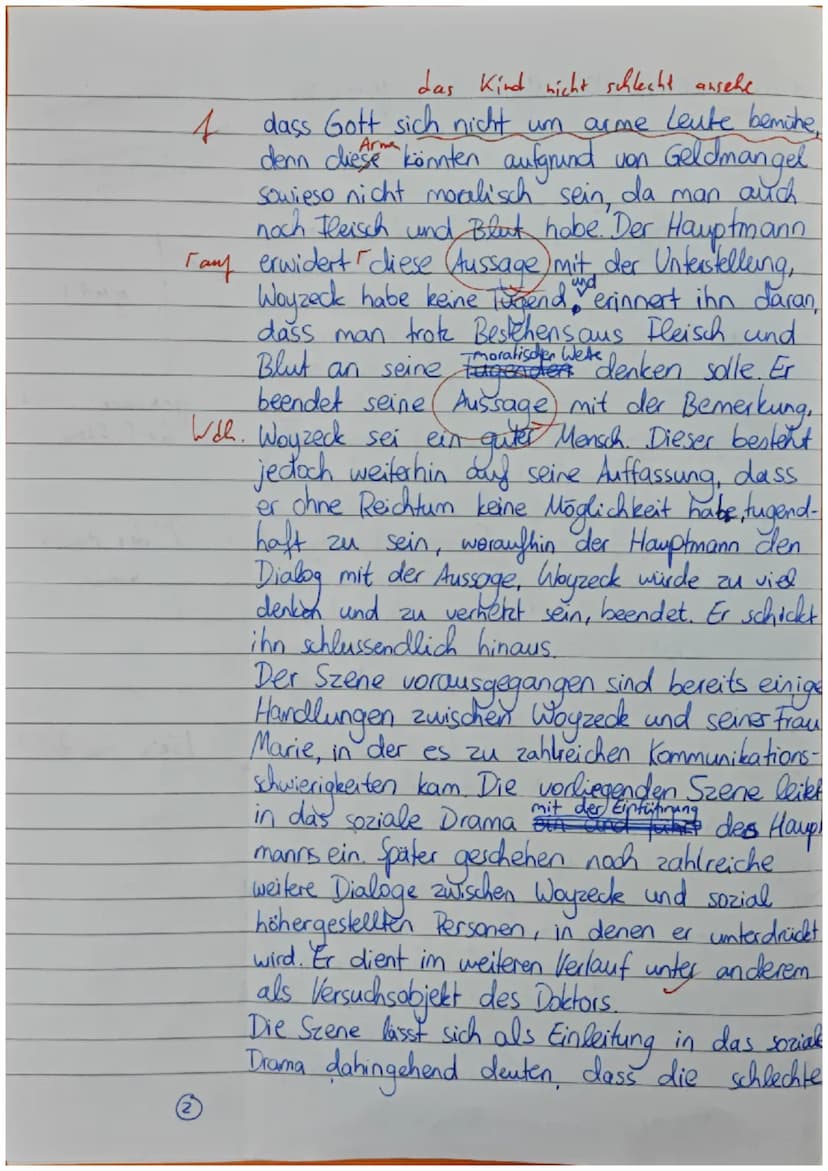 das Kind nicht schlecht ansehe
f dass Gott sich nicht um arme Leute bemühe,
Arme
denn diese könnten aufgrund von Geldmangel
sowieso nicht moralisch sein, da man auch
noch Fleisch und Blut habe. Der Hauptmann
Γ auf erwidert Γ diese Aussage mit der Unterstellung,
und
Woyzeck habe keine Tugend, erinnert ihn daran,
dass man trotz Bestehens aus Fleisch und
moralischen Werte
Blut an seine Tugenden denken solle. Er
beendet seine Aussage mit der Bemerkung,
Wdh. Woyzeck sei ein guter Mensch. Dieser besteht
jedoch weiterhin auf seine Auffassung, dass
er ohne Reichtum keine Möglichkeit habe, tugend-
haft zu sein, woraufhin der Hauptmann den
Dialog mit der Aussage, Woyzeck würde zu viel
denken und zu verhetzt sein, beendet. Er schickt
ihn schlussendlich hinaus.
Der Szene vorausgegangen sind bereits einige
Handlungen zwischen Woyzeck und seiner Frau
Marie, in der es zu zahlreichen Kommunikations-
schwierigkeiten kam. Die vorliegenden Szene leitet
mit der Einführung
in das soziale Drama des Haupt
manns ein. Später geschehen noch zahlreiche
weitere Dialoge zwischen Woyzeck und sozial
höhergestellten Personen, in denen er unterdrückt
wird. Er dient im weiteren Verlauf unter anderem
als Versuchsobjekt des Doktors.
Die Szene lässt sich als Einleitung in das soziale
Drama dahingehend deuten, dass die schlechte
2